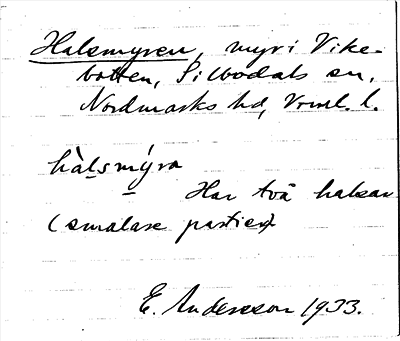 Halsmyren, myr i Vike-
botten, Silbodals sn,
Nordmarks hd, Vrml. l.
hàlsmýra
Har två halsar
(smalare partier)
E. Andersson 1933.